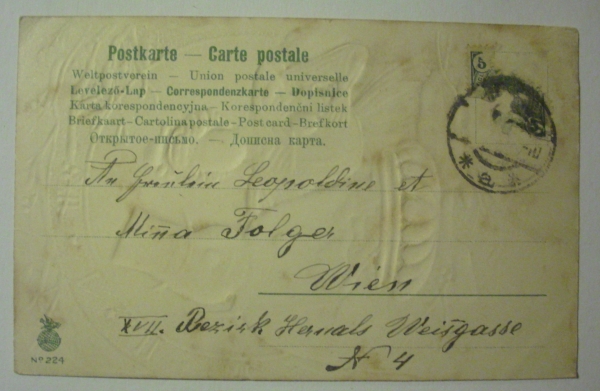 Postkarte — Carte postale
Weltpostverein — Union postale universelle
Levelező-Lap — Correspondenzkarte — Dopisnice
Karta korespondencyjna — Korespondenční lístek
Briefkaart — Cartolina postale — Post card — Brefkort
Открытое-письмо. — Дописна карта.
5
An Fräulein Leopoldine et
Mina Folger
Wien
XVII. Bezirk Hernals Weißgasse
N 4
No 224